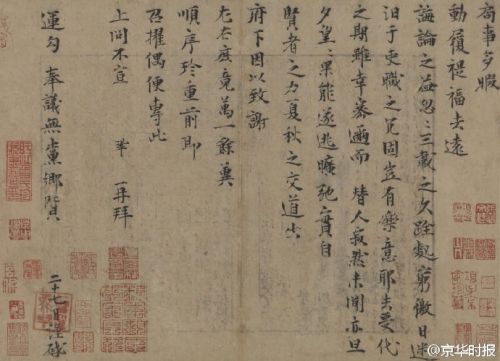 局事多暇
動履禔福去遠
誨論之益忽忽三載之久跧處窮徼日迷
汨于吏職之冗固豈有樂意耶去受代
之期雖幸密邇而替人寂然未聞亦旦
夕望望果能遂逃曠弛實自
賢者之力夏秋之交道出
府下因以致謝
左右庶竟萬一餘冀
順序珍重前即
召擢偶便專此
上問不宣 鞏再拜
運勾奉議無黨鄉賢
二十七日謹啟
@京华时报